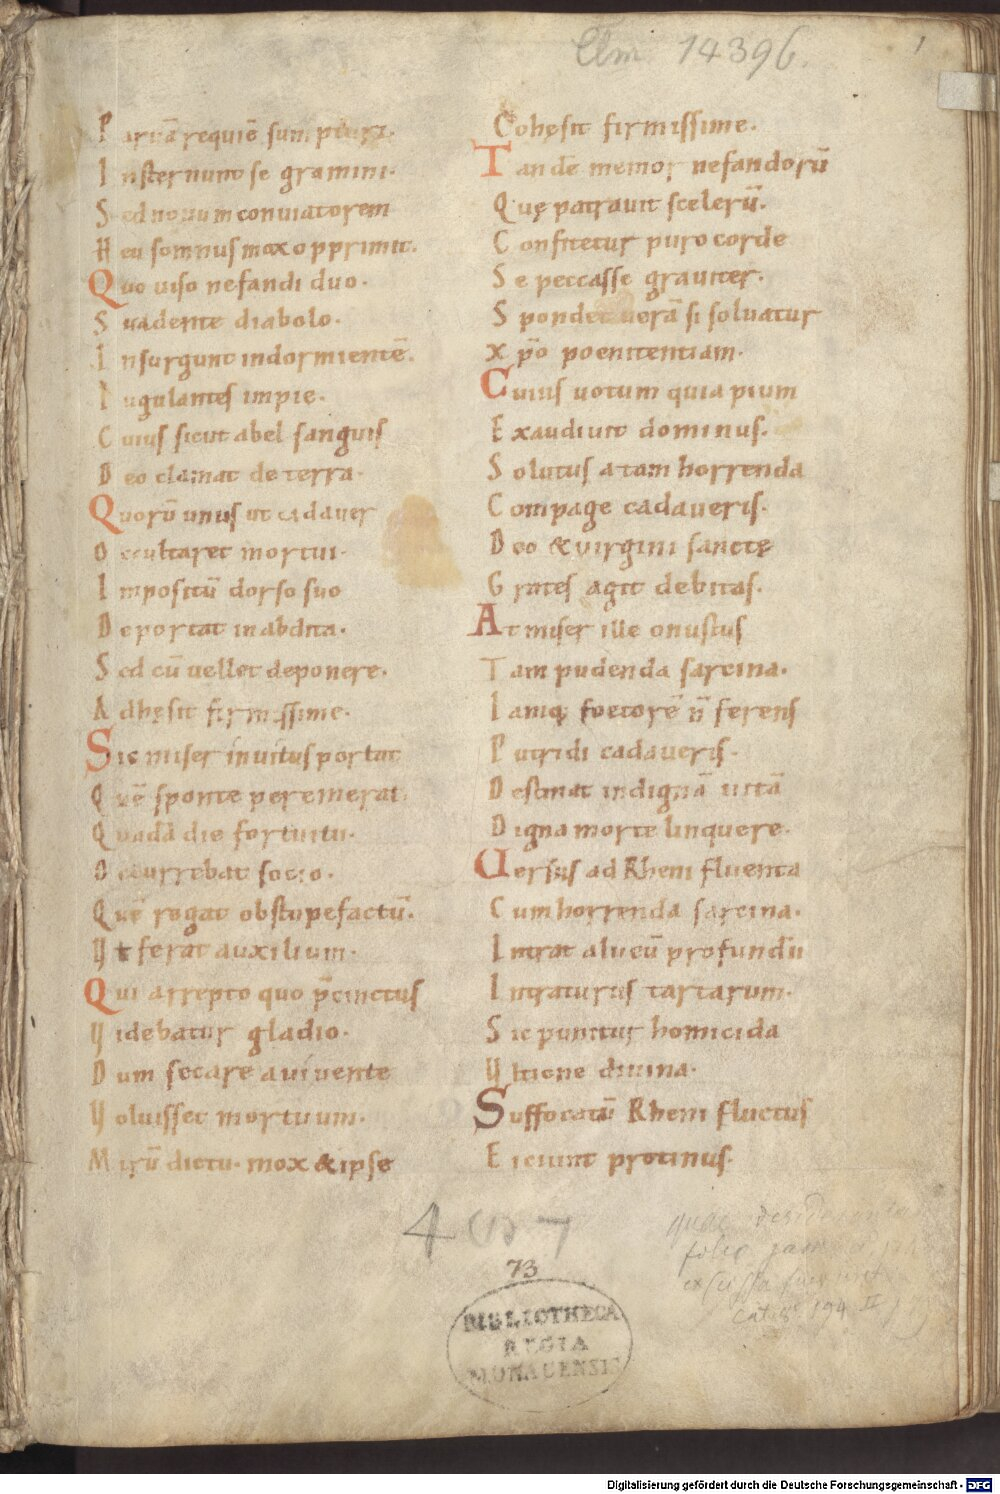 Clm 14396.
1
Paruā requiē sumpturi·
Insternunt se gramini·
Sed nouum conuiatorem
Heu somnus mox opprimit·
Quo uiso nefandi duo·
Suadente diabolo·
Insurgunt in dormientē·
Iugulantes impie·
Cuius sicut abel sanguis
Deo clamat de terra·
Quorū unus ut cadauer
Occultaret mortui·
Impositū dorso suo
Deportat in abdita·
Sed cū uellet deponere·
Adhęsit firmissime·
Sic miser inuitus portat
Quē sponte peremerat·
Quadā die fortuitu·
Occurrebat socio·
Quē rogat obstupefactū·
Ut ferat auxilium·
Qui arrepto quo p̄cinctus
Uidebatur gladio·
Dum secare a uiuente
Uoluisset mortuum·
Mirū dictu· mox & ipse
Cohęsit firmissime·
Tandē memor nefandorū
Quę patrauit scelerū·
Confitetur puro corde
Se peccasse grauiter·
Spondet uerā si soluatur
Xp̄o poenitentiam·
Cuius uotum quia pium
Exaudiuit dominus·
Solutus a tam horrenda
Compage cadaueris·
Deo & uirgini sanctę
Grates agit debitas·
At miser ille onustus
Tam pudenda sarcina·
Iamq; foetorē n̄ ferens
Putridi cadaueris·
Destinat indignā uitā
Digna morte linquere·
Uersus ad Rheni fluenta
Cum horrenda sarcina·
Intrat alueū profundū
Intraturus tartarum·
Sic punitur homicida
Ultione diuina·
Suffocatū Rheni fluctus
Eiciunt protinus·
73
BIBLIOTHECA
REGIA
MONACENSIS
Digitalisierung gefördert durch die Deutsche Forschungsgemeinschaft - DFG